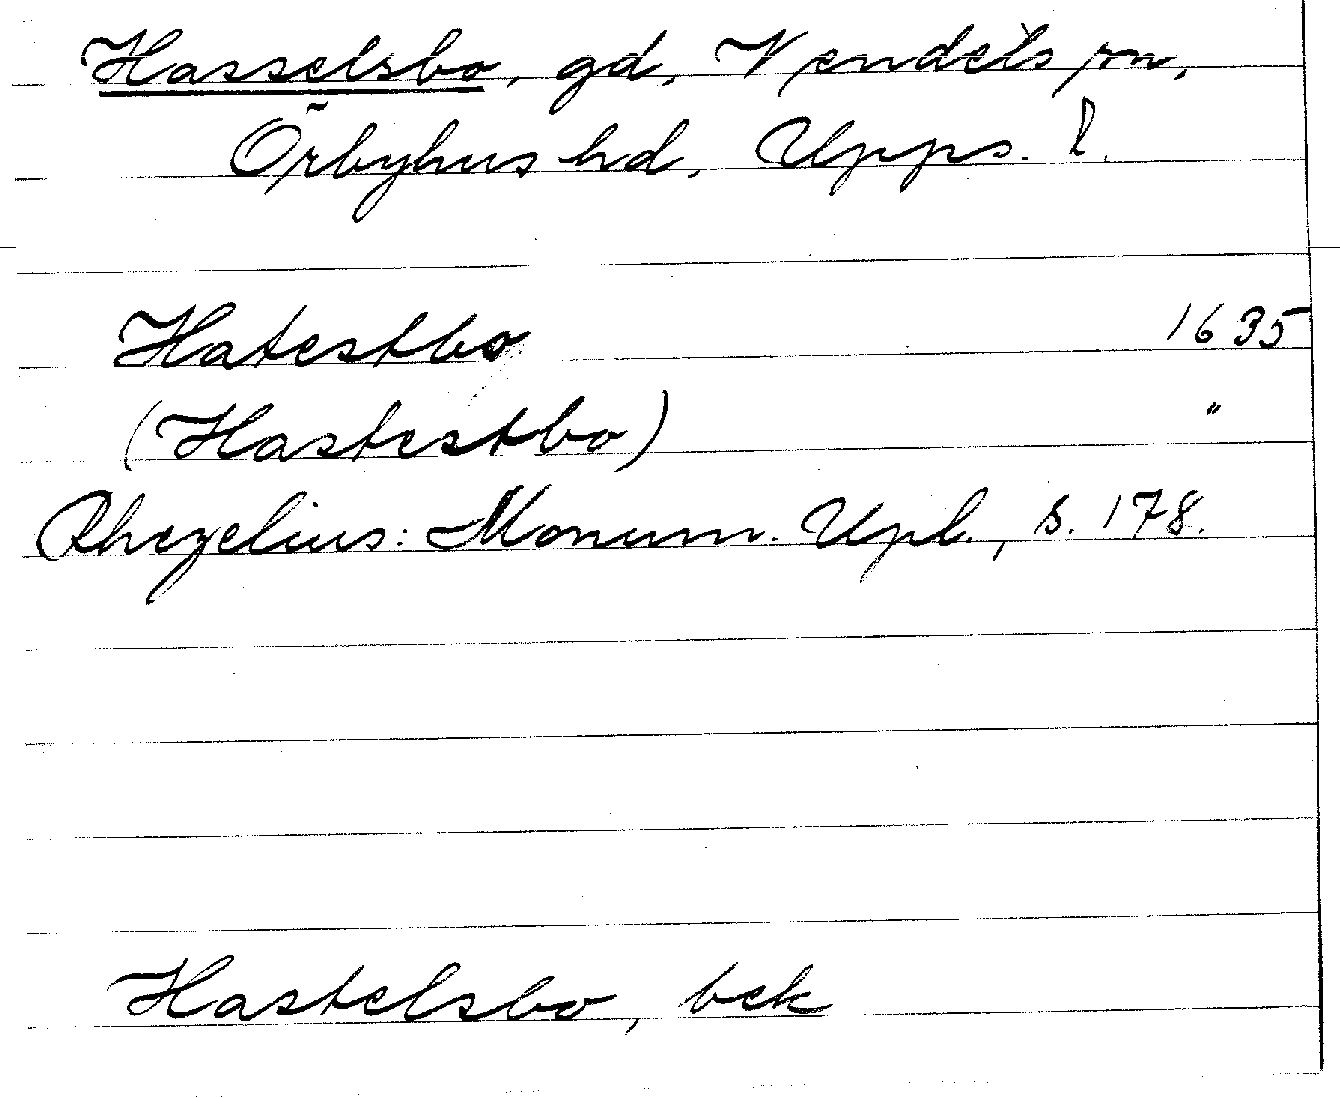 Hasselsbo, gd, Vendels sn,
Örbyhus hd, Upps. l.
Hatestbo 1635
(Hastestbo) "
Rhezelius: Monum. Upl., s. 178.
Hastelsbo, bek